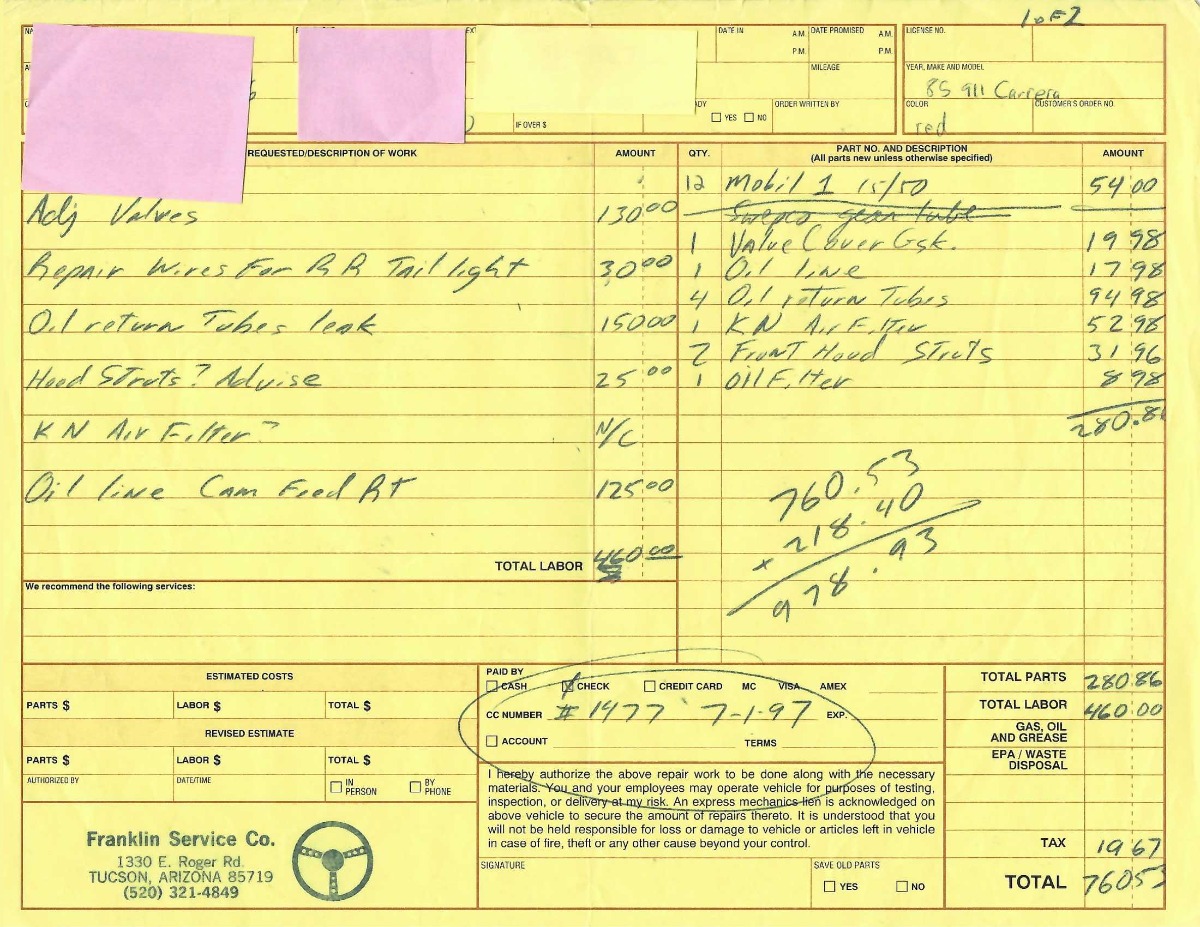 1 of 2
DATE IN
A.M.
P.M.
DATE PROMISED
A.M.
P.M.
LICENSE NO.
MILEAGE
YEAR, MAKE AND MODEL
85 911 Carrera
IF OVER $
YES NO
ORDER WRITTEN BY
COLOR
red
CUSTOMER'S ORDER NO.
REQUESTED/DESCRIPTION OF WORK AMOUNT
QTY. PART NO. AND DESCRIPTION AMOUNT
(All parts new unless otherwise specified)
Adj Valves 130 00
Repair Wires For RR Tail light 30 00
Oil return Tubes leak 150 00
Hood Struts? Advise 25 00
KN Air Filter? N/C
Oil line Cam Feed Rt 125 00
TOTAL LABOR 460 00
12 Mobil 1 15/50 54 00
Swepco gear lube
1 Valve Cover Gsk. 19 98
1 Oil line 17 98
4 Oil return Tubes 94 98
1 KN Air Filter 52 98
2 Front Hood Struts 31 96
1 Oil Filter 8 98
280.86
760.53
218.40
978.93
We recommend the following services:
ESTIMATED COSTS
PARTS $ LABOR $ TOTAL $
REVISED ESTIMATE
PARTS $ LABOR $ TOTAL $
AUTHORIZED BY DATE/TIME IN PERSON BY PHONE
Franklin Service Co.
1330 E. Roger Rd.
TUCSON, ARIZONA 85719
(520) 321-4849
PAID BY
CASH CHECK CREDIT CARD MC VISA AMEX
CC NUMBER # 1977 7-1-97 EXP.
ACCOUNT TERMS
I hereby authorize the above repair work to be done along with the necessary
materials. You and your employees may operate vehicle for purposes of testing,
inspection, or delivery at my risk. An express mechanics lien is acknowledged on
above vehicle to secure the amount of repairs thereto. It is understood that you
will not be held responsible for loss or damage to vehicle or articles left in vehicle
in case of fire, theft or any other cause beyond your control.
SIGNATURE
SAVE OLD PARTS
YES NO
TOTAL PARTS 280.86
TOTAL LABOR 460 00
GAS, OIL
AND GREASE
EPA / WASTE
DISPOSAL
TAX 19 67
TOTAL 760 53